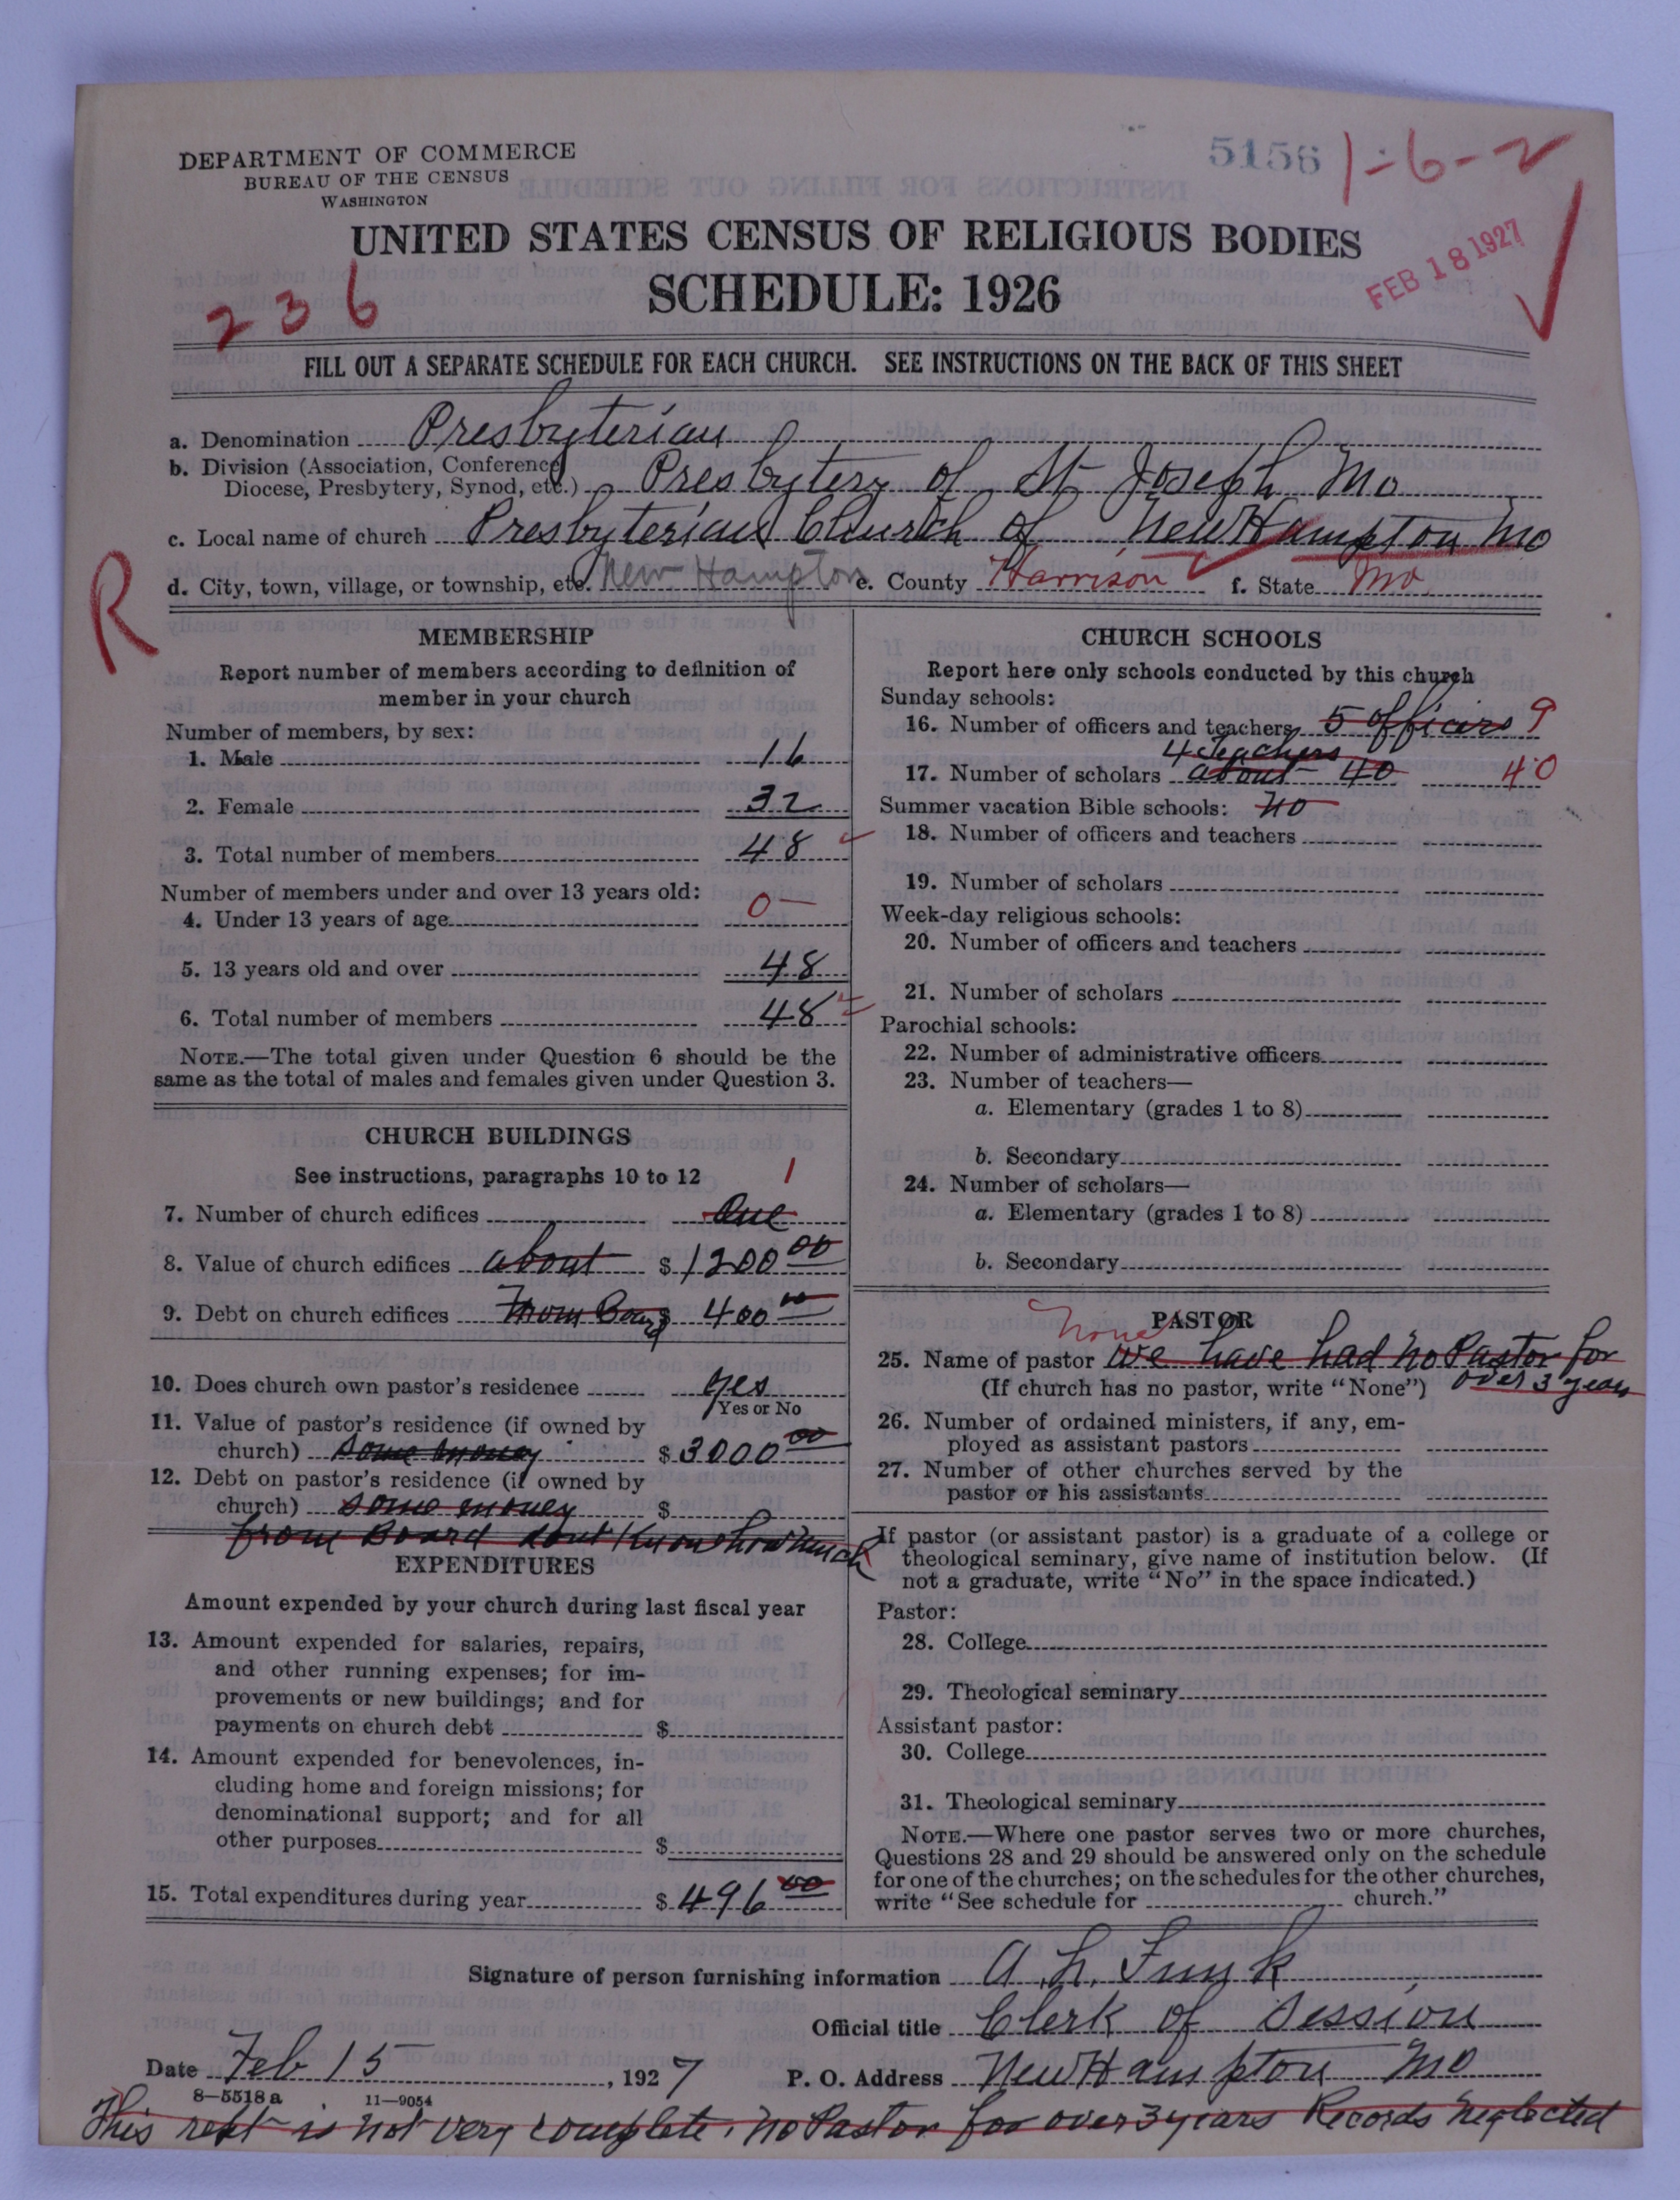 DEPARTMENT OF COMMERCE
BUREAU OF THE CENSUS
WASHINGTON
5156 1-6-2
UNITED STATES CENSUS OF RELIGIOUS BODIES
SCHEDULE: 1926
FEB 18 1927
236
FILL OUT A SEPARATE SCHEDULE FOR EACH CHURCH. SEE INSTRUCTIONS ON THE BACK OF THIS SHEET
a. Denomination Presbyterian
b. Division (Association, Conference
Diocese, Presbytery, Synod, etc.) Presbytery of St Joseph Mo
c. Local name of church Presbyterian Church of New Hampton Mo
d. City, town, village, or township, etc. New Hampton e. County Harrison f. State Mo
R
MEMBERSHIP
Report number of members according to definition of
member in your church
Number of members, by sex:
1. Male 16
2. Female 32
3. Total number of members 48
Number of members under and over 13 years old:
4. Under 13 years of age 0
5. 13 years old and over 48
6. Total number of members 48
NOTE.—The total given under Question 6 should be the
same as the total of males and females given under Question 3.
CHURCH BUILDINGS
See instructions, paragraphs 10 to 12 1
7. Number of church edifices One
8. Value of church edifices about $ 1200 00
9. Debt on church edifices From Board $ 400 00
10. Does church own pastor's residence yes
Yes or No
11. Value of pastor's residence (if owned by
church) some money $ 3000 00
12. Debt on pastor's residence (if owned by
church) some money $
from Board dont Know how much
EXPENDITURES
Amount expended by your church during last fiscal year
13. Amount expended for salaries, repairs,
and other running expenses; for im-
provements or new buildings; and for
payments on church debt $
14. Amount expended for benevolences, in-
cluding home and foreign missions; for
denominational support; and for all
other purposes $
15. Total expenditures during year $ 496 00
CHURCH SCHOOLS
Report here only schools conducted by this church
Sunday schools:
16. Number of officers and teachers 5 officers 9
4 Teachers
17. Number of scholars about 40 40
Summer vacation Bible schools: no
18. Number of officers and teachers
19. Number of scholars
Week-day religious schools:
20. Number of officers and teachers
21. Number of scholars
Parochial schools:
22. Number of administrative officers
23. Number of teachers—
a. Elementary (grades 1 to 8)
b. Secondary
24. Number of scholars—
a. Elementary (grades 1 to 8)
b. Secondary
None PASTOR
25. Name of pastor We have had no Pastor for
(If church has no pastor, write "None") over 3 years
26. Number of ordained ministers, if any, em-
ployed as assistant pastors
27. Number of other churches served by the
pastor or his assistants
If pastor (or assistant pastor) is a graduate of a college or
theological seminary, give name of institution below. (If
not a graduate, write "No" in the space indicated.)
Pastor:
28. College
29. Theological seminary
Assistant pastor:
30. College
31. Theological seminary
NOTE.—Where one pastor serves two or more churches,
Questions 28 and 29 should be answered only on the schedule
for one of the churches; on the schedules for the other churches,
write "See schedule for church."
Signature of person furnishing information A. L. Funk
Official title Clerk of Session
Date Feb 15, 1927 P. O. Address New Hampton Mo
8-5518a 11-9054
This rept is not very complete. no Pastor for over 3 years Records neglected